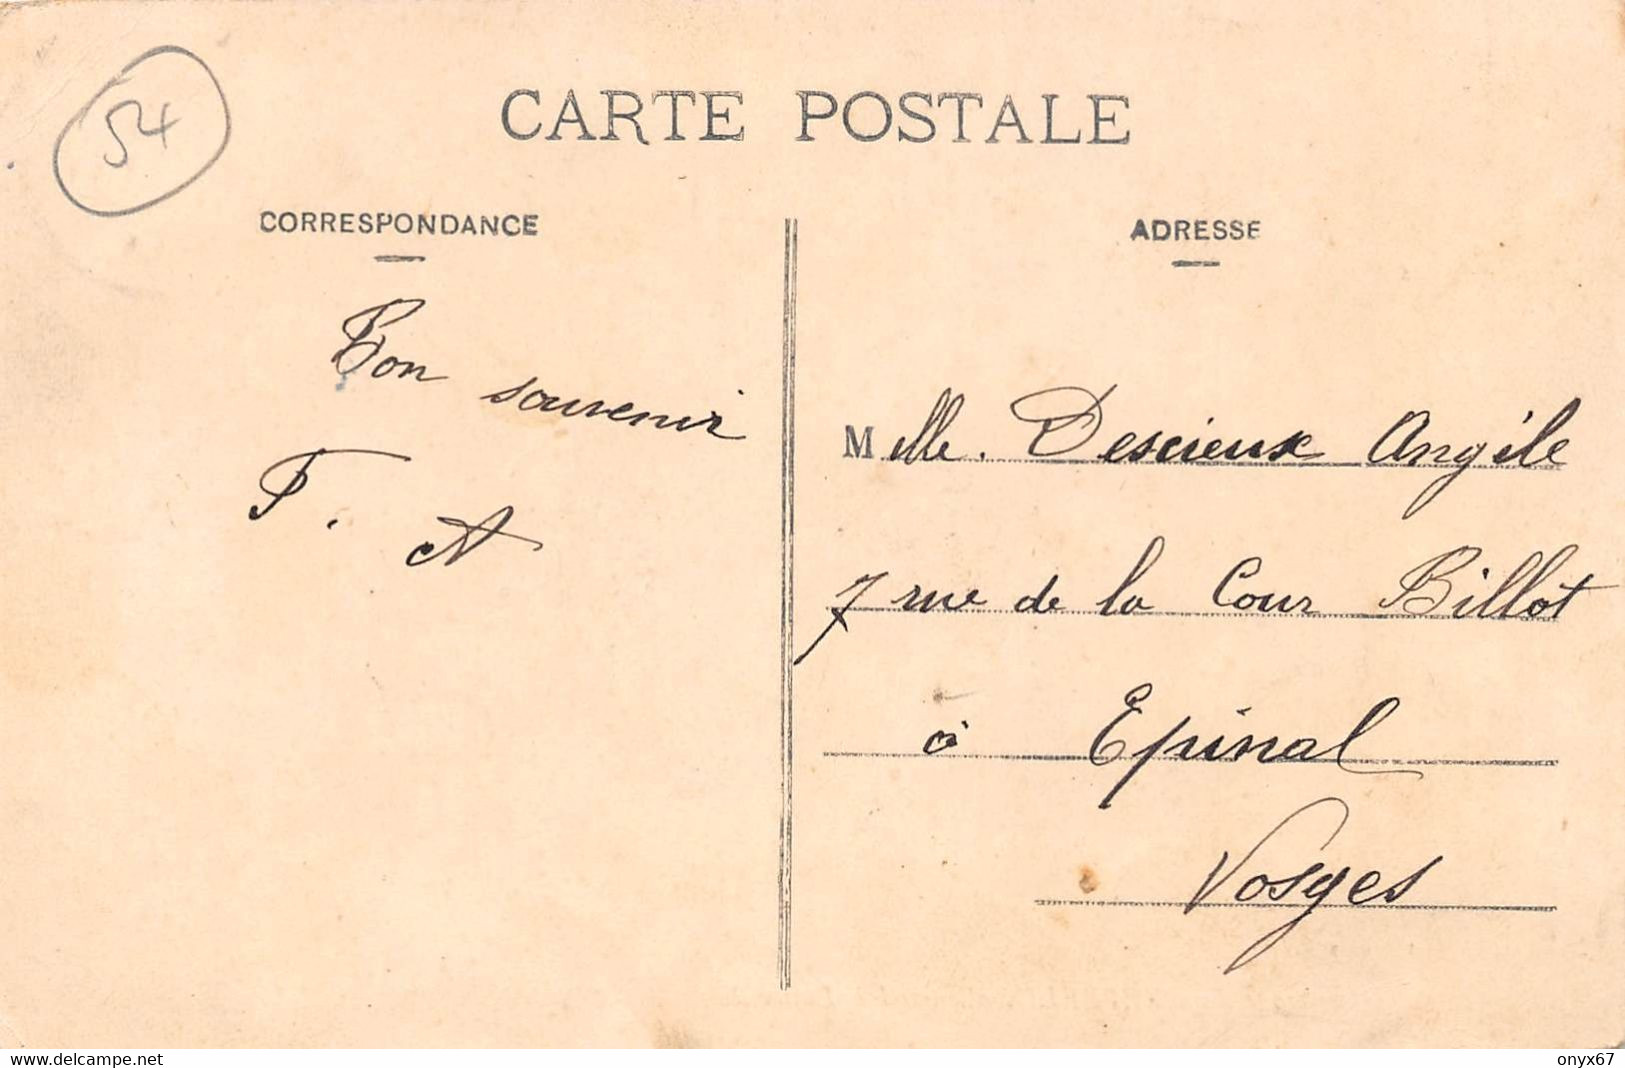 54
CARTE POSTALE
CORRESPONDANCE
Bon souvenir
F. A
ADRESSE
Melle. Descieux Angèle
7 rue de la Cour Billot
à Epinal
Vosges
www.delcampe.net
onyx67